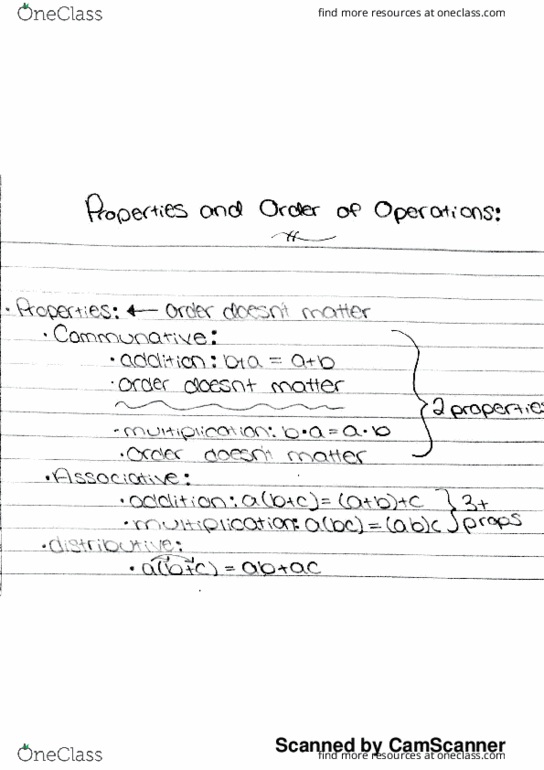 OneClass
find more resources at oneclass.com
Properties and Order of Operations:
• Properties: ← order doesn't matter
• Communative:
• addition: b+a = a+b
• order doesnt matter
2 properties
• multiplication: b•a = a•b
• Order doesn't matter
• Associative:
• addition: a(b+c) = (a+b)+c } 3+
• multiplication: a(bc) = (ab)c } props
• distributive:
• a(b+c) = ab+ac
Scanned by CamScanner
OneClass
find more resources at oneclass.com